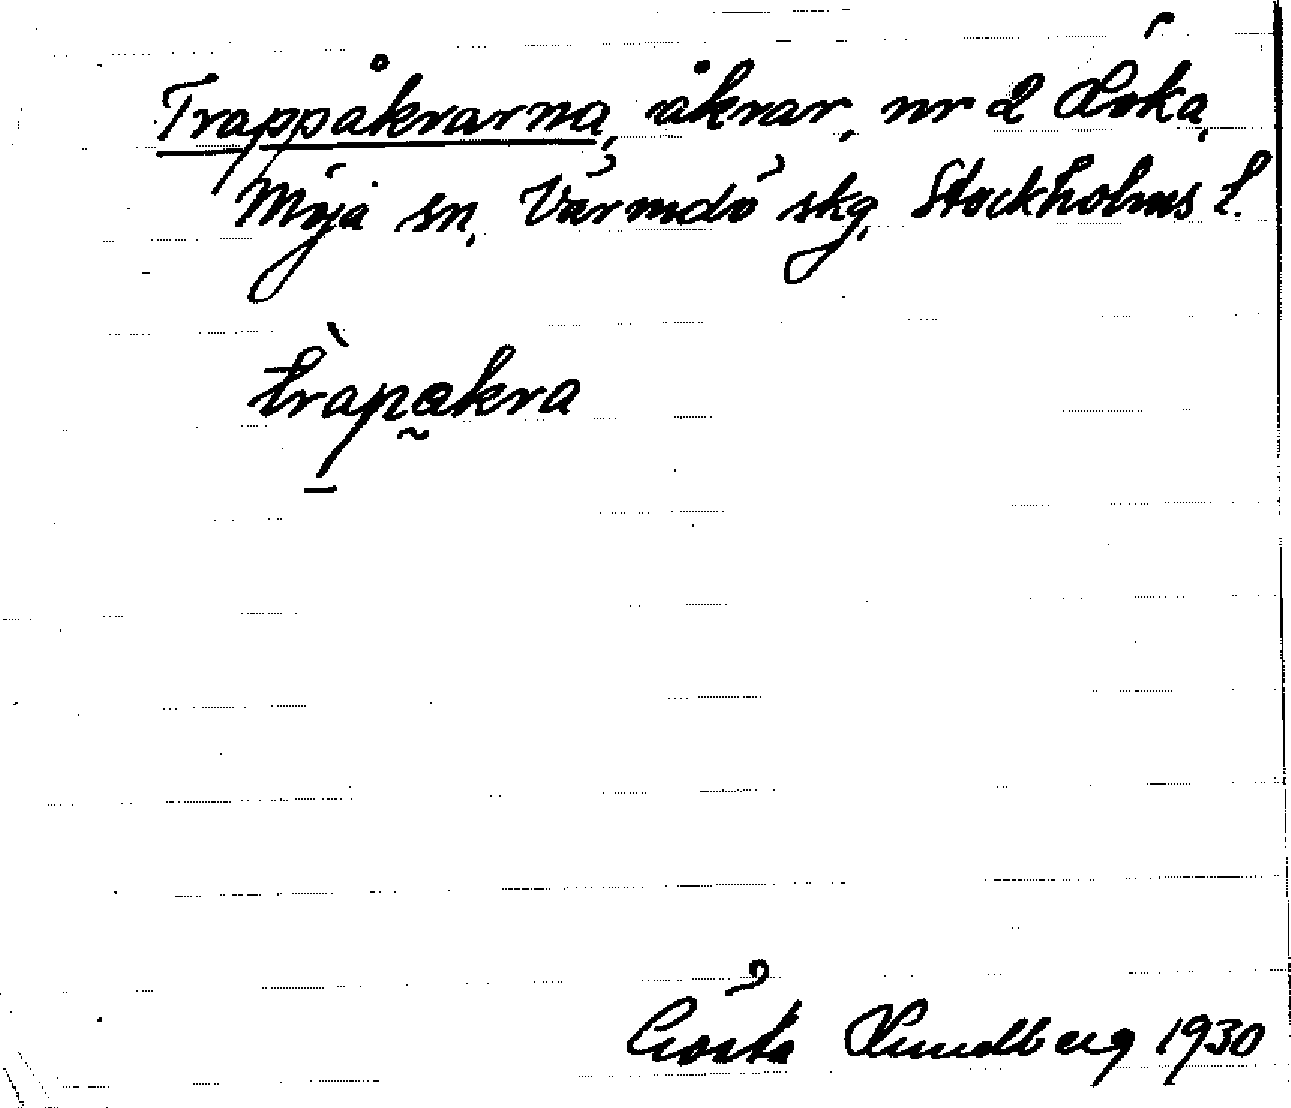 Trappåkrarna, åkrar, nr 2 Löka,
Möja sn, Värmdö skg, Stockholms l.
tràpakra
Gösta Lundberg 1930